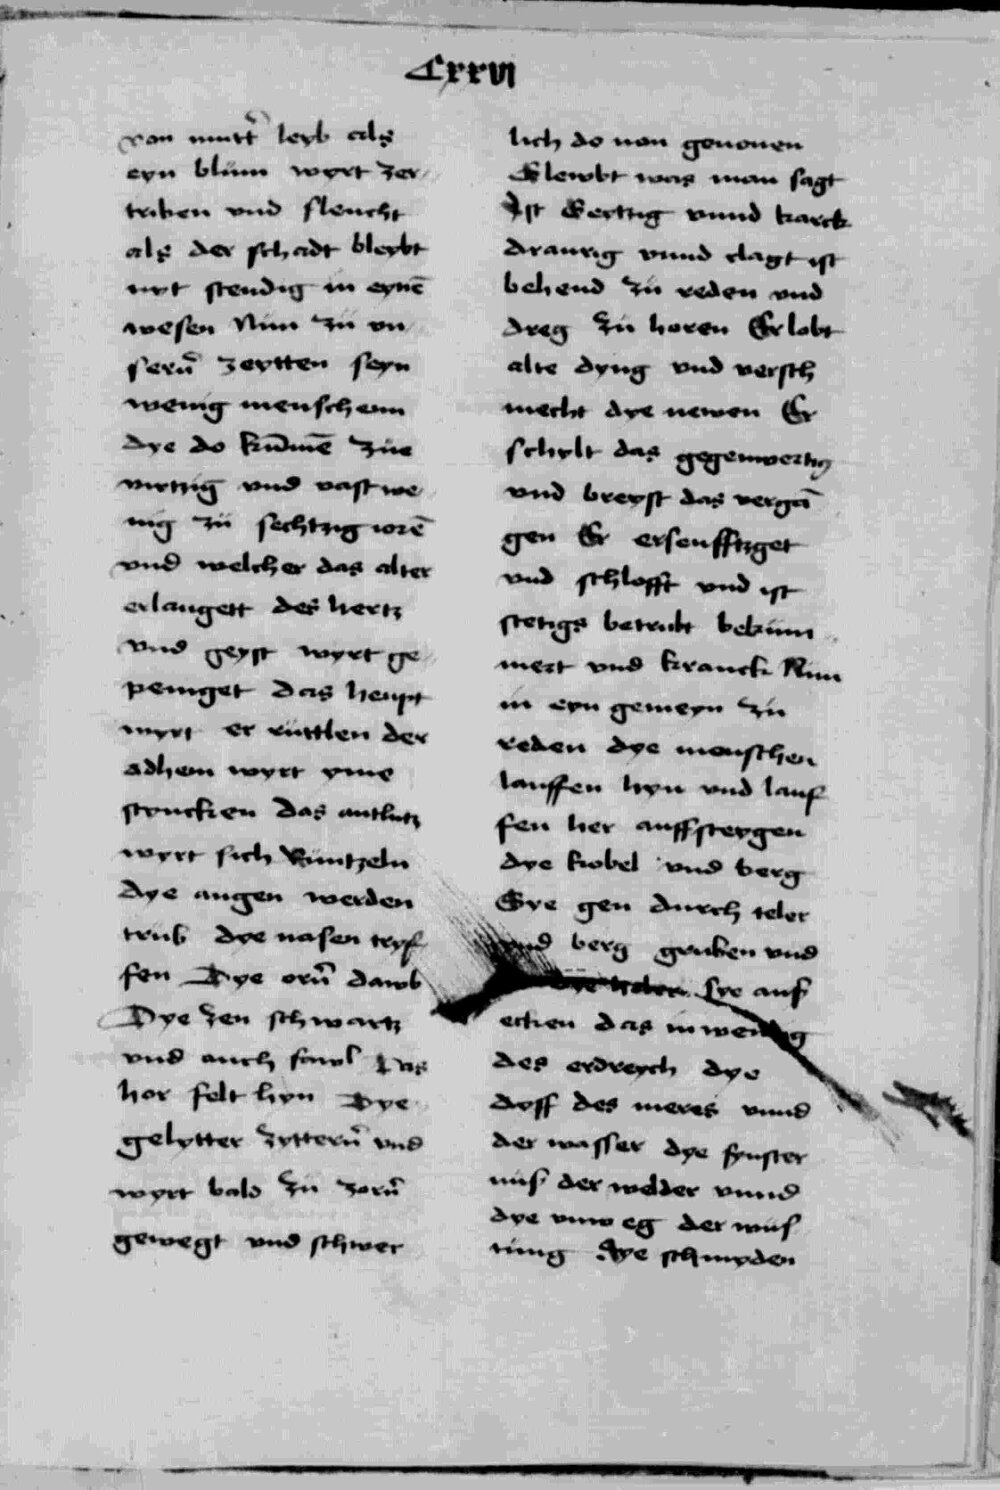 Cxxvi
von mutt̃ leyb als
eyn blům wyrt zer
triben vnd fleucht
als der schadt bleybt
nyt stendig in eynē
wesen Nun zů vn
serñ zeytten seyn
wenig menschenn
dye do kūmē zůe
virtzig vnd vast we
nig zů sechtzig iorē
vnd welcher das alter
erlangett des hertz
vnd geyst wyrt ge
peniget das heupt
wyrt er rüttlen der
adhem wyrt yme
styncken das antlutz
wyrt sich Runtzeln
dye augen werden
trüb dye nasen tryf
fen Dye orñ dawb
Dye zen schwartz
vnd auch fawl Das
hor felt hyn Dye
gelytter zytterñ vnd
wyrt bald zů zorñ
gewegt vnd schwer
lich do von genomen
Glewbt was man sagt
Ist Geyttig vnnd karck
draurig vnnd clagt ist
behend zů reden vnd
dreg zů horen Er lobt
alte dyng vnd versch
mecht dye newen Er
schylt das gegenwertig
vnd breyst das vergā
gen Er ersenfftzget
vnd schlofft vnd ist
stetigs betrubt bekům
mert vnd kranck Nun
in eyn gemeyn zů
reden dye menschen
lauffen hyn vnd lauf
fen her auffsteygen
dye kobel vnd berg
Sye gen durch teler
vnd berg gruben vnd
dye holer Sye auf
ecken das inwendig
des erdreych dye
dyff des meres vnnd
der wasser dye fynster
nus der welder vnnd
dye vnweg der wus
tung Sye schmyden